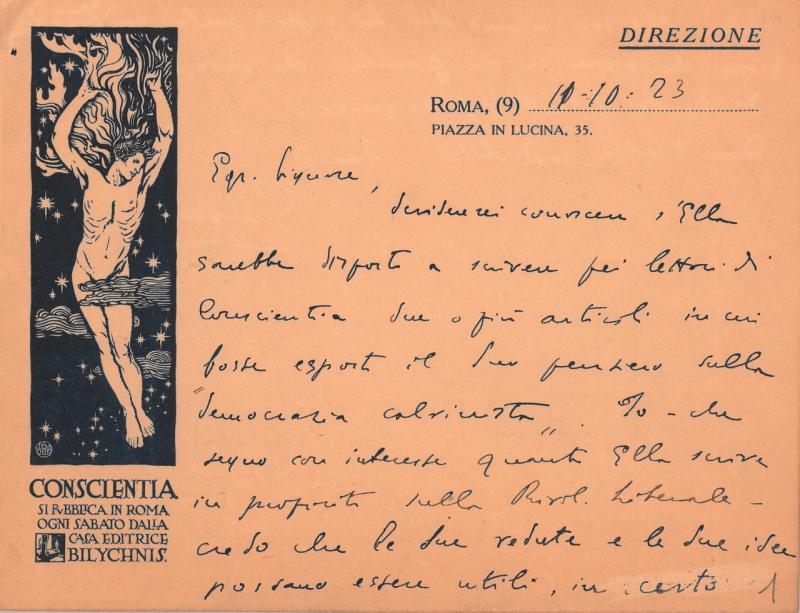 DIREZIONE
ROMA, (9) 10-10-23
PIAZZA IN LUCINA, 35.
Egr. Signore,
desidererei conoscere s'Ella
sarebbe disposto a scrivere pei lettori di
Conscientia due o più articoli in cui
fosse esposto il suo pensiero sulla
"democrazia calvinista". Io - che
seguo con interesse quanto Ella scrive
in proposito sulla Rivol. Liberale -
credo che le sue vedute e le sue idee
possano essere utili, in certo
CONSCIENTIA
SI PUBBLICA IN ROMA
OGNI SABATO DALLA
CASA EDITRICE
BILYCHNIS.